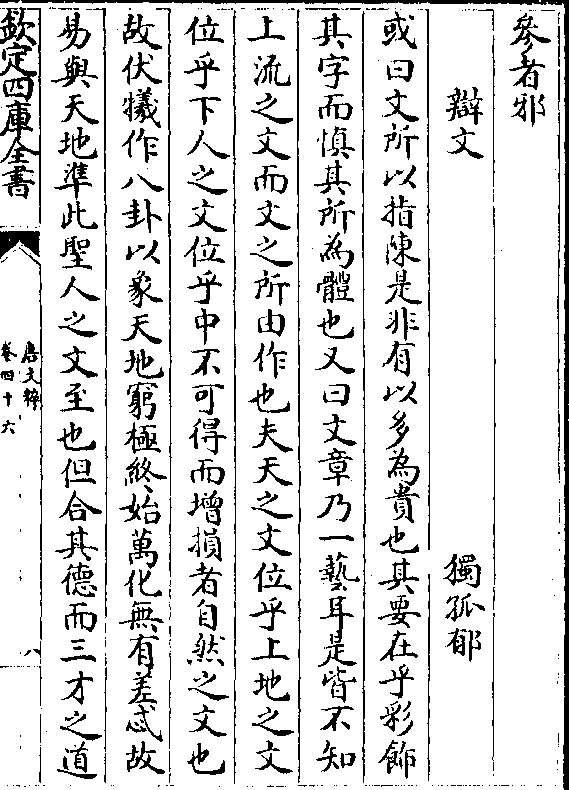 參者邪
辯文 獨孤郁
或曰文所以指陳是非有以多為貴也其要在乎彩飾
其字而慎其所為體也又曰文章乃一藝耳是皆不知
上流之文而文之所由作也夫天之文位乎上地之文
位乎下人之文位乎中不可得而增損者自然之文也
故伏犧作八卦以象天地窮極終始萬化無有差忒故
易與天地準此聖人之文至也但合其德而三才之道
欽定四庫全書
唐文粹
卷四十六
八